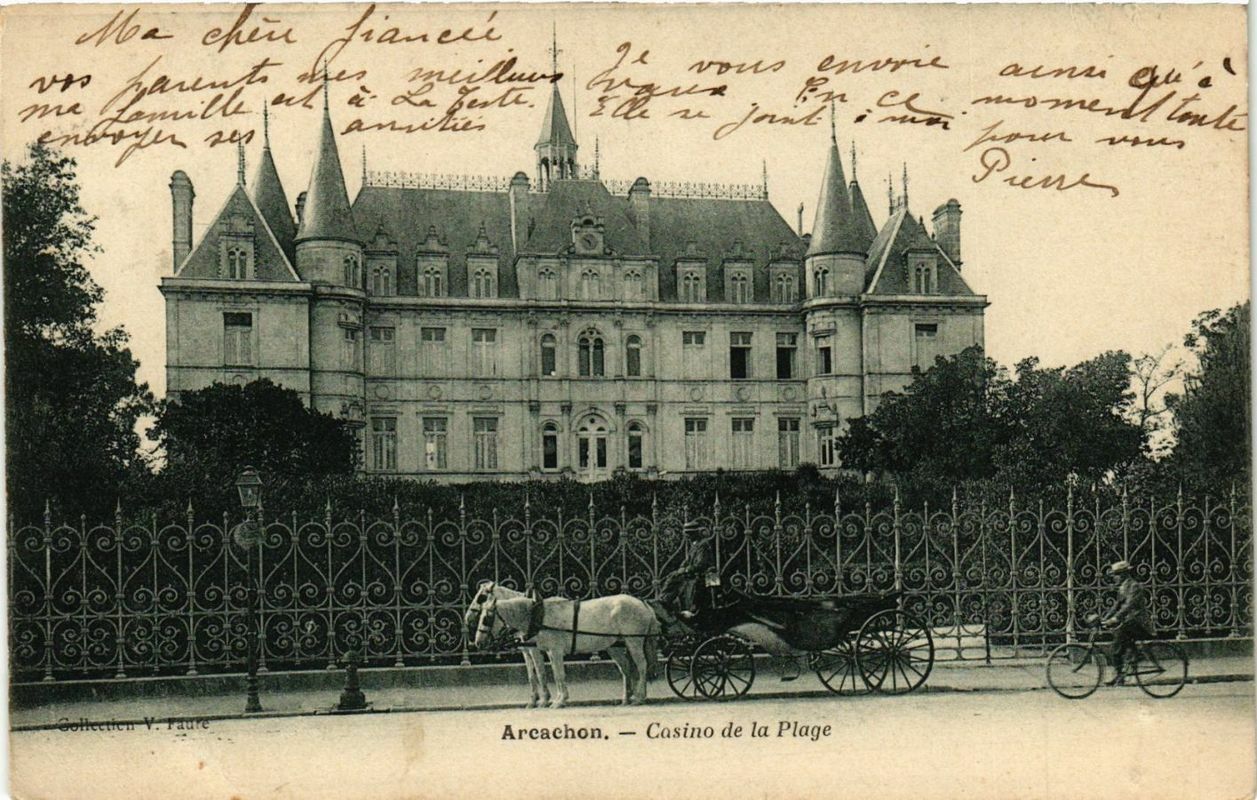 Ma chère fiancée
Je vous envoie ainsi qu'à
vos parents mes meilleurs
vœux En ce moment toute
ma famille est à La Teste.
Elle se joint à moi pour vous
envoyer ses amitiés
Pierre
Collection V. Faure
Arcachon. — Casino de la Plage